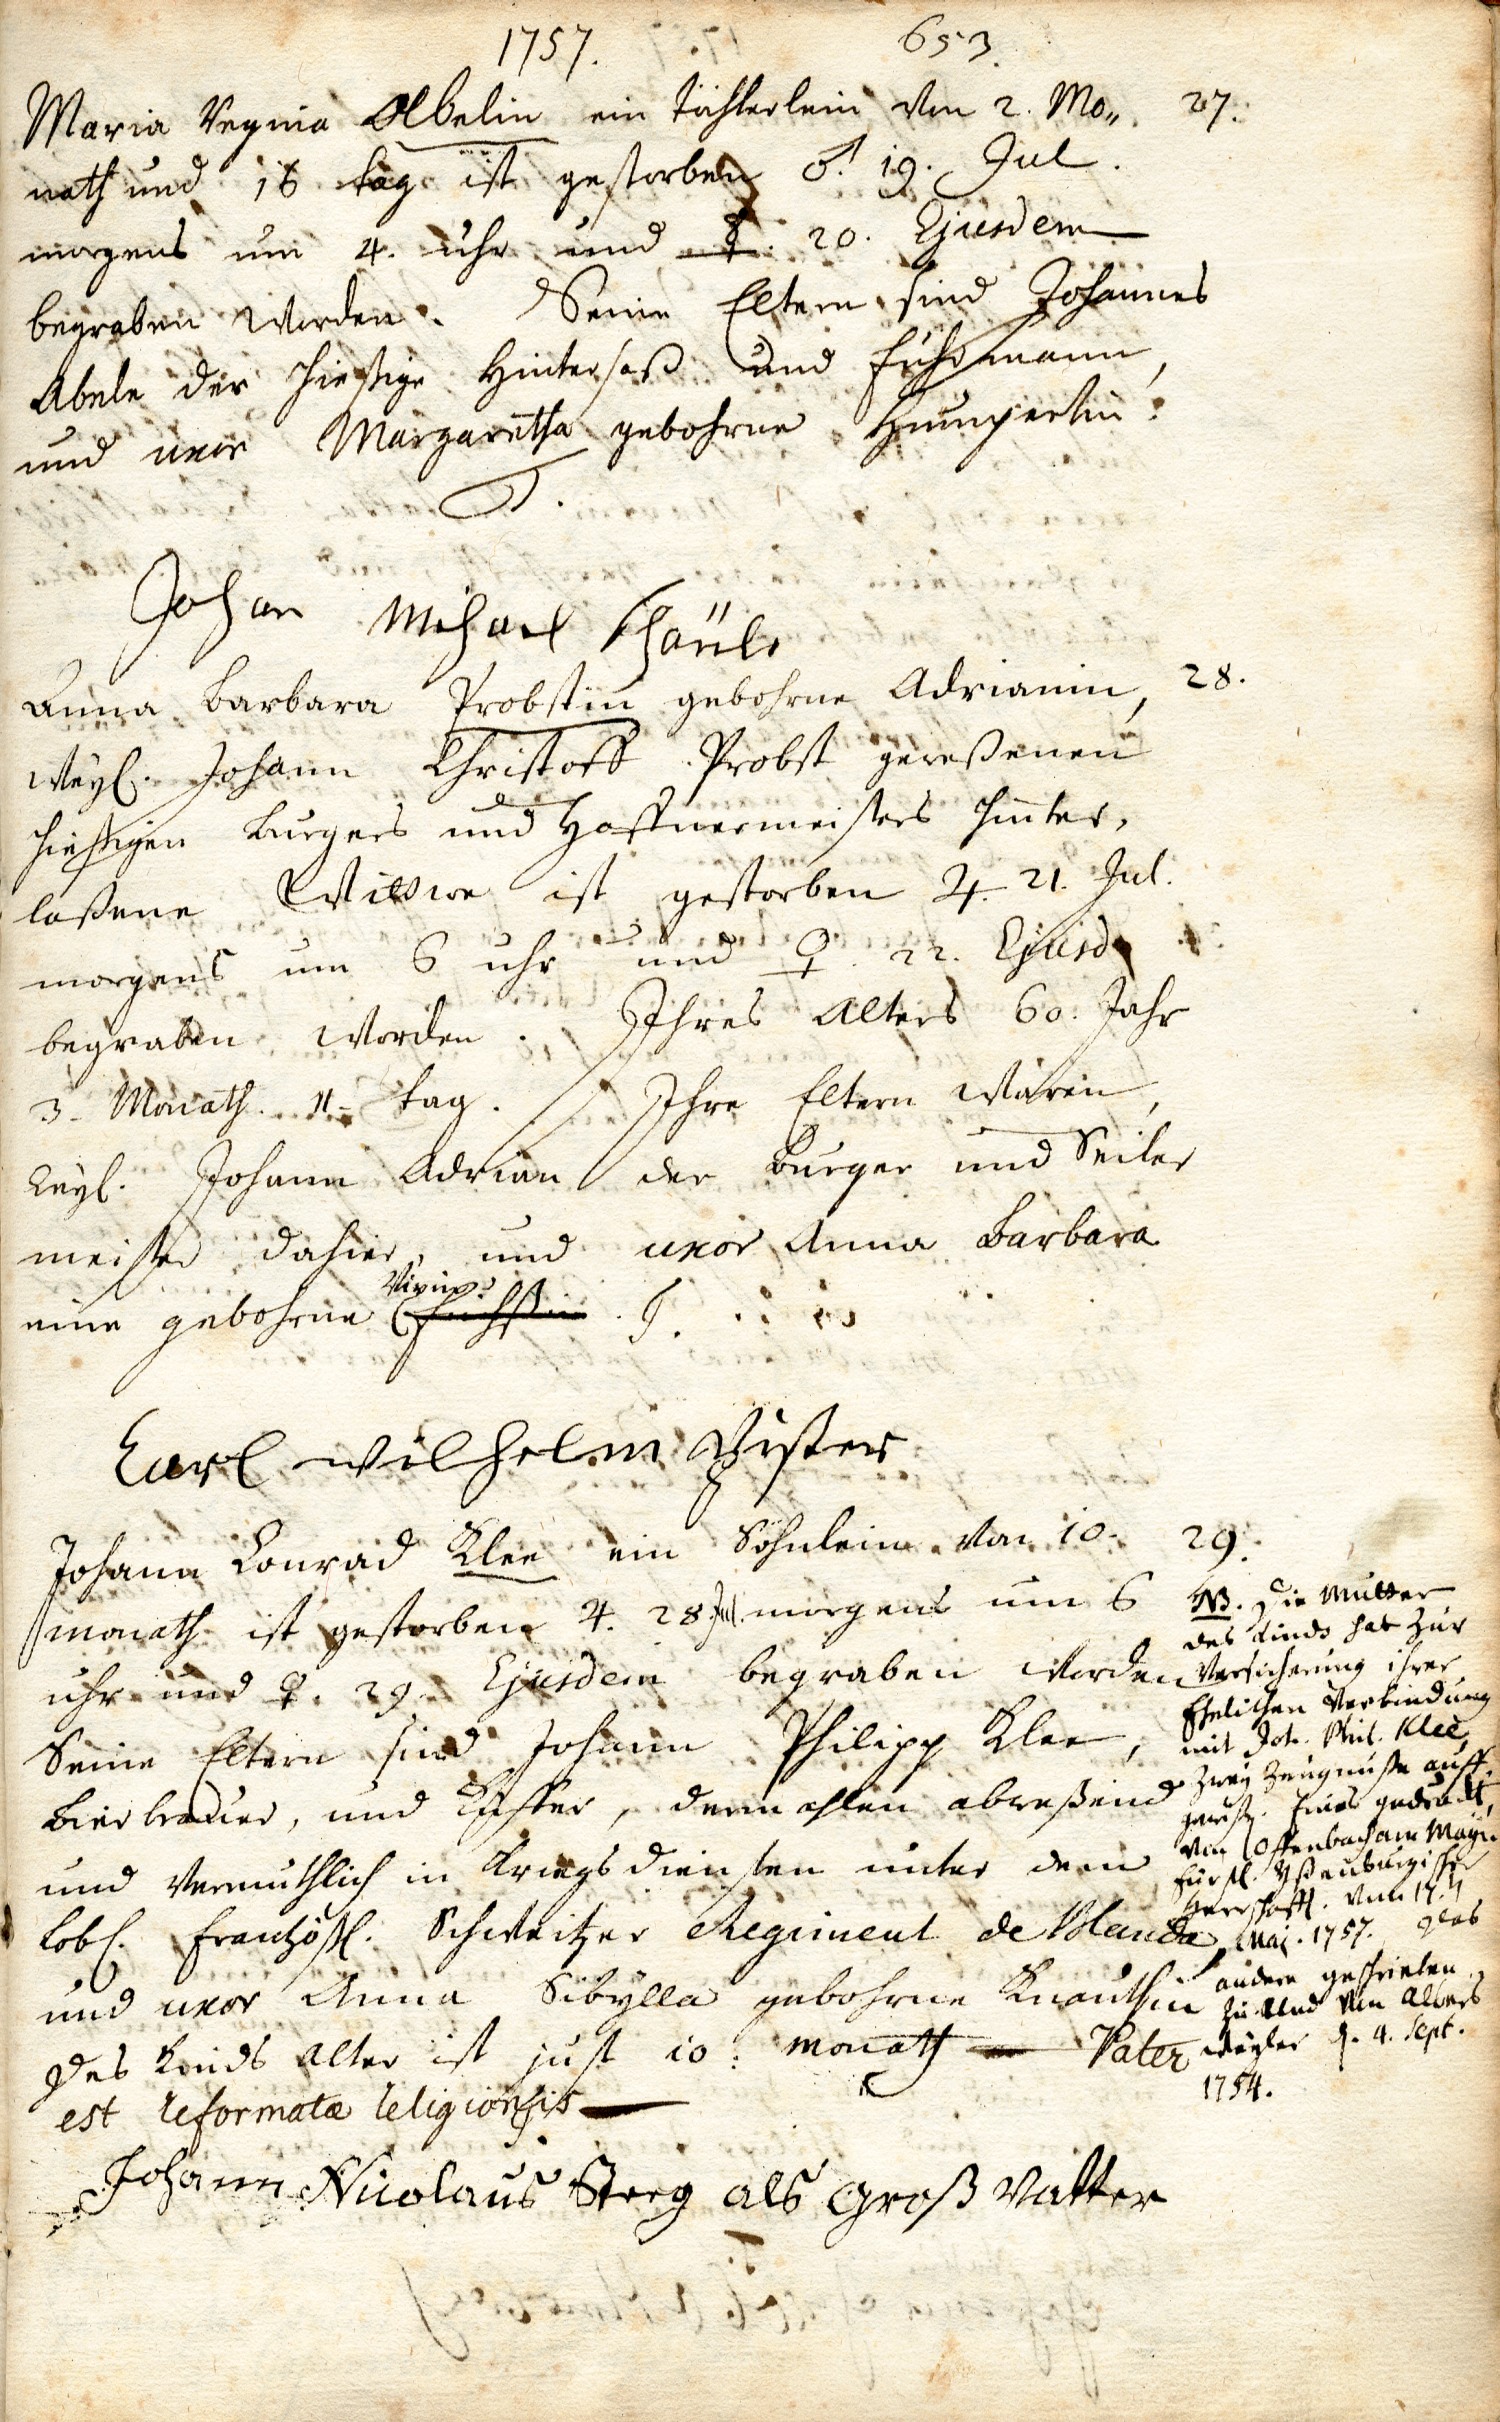 1757. 653.
Maria Regina Abelin ein töchterlein von 2. Mo„ 27.
nath und 16 tag ist gestorben ♂. 19. Jul.
morgens um 4. uhr und ☿. 20. Ejusdem
begraben worden. Seine Eltern sind Johannes
Abele der hießige Hintersaß und fuhrmann,
und uxor Margaretha gebohrne
Johan Michael Schäule
Anna Barbara Probstin gebohrne Adrianin, 28.
weyl. Johann Christoff Probst geweßenen
hießigen Burgers und Haffnermeisters hinter,
laßene Wittwe ist gestorben ♃. 21. Jul.
morgens um 6 uhr und ♀. 22. Ejusd.
begraben worden. Ihres Alters 60. Jahr
3. Monath. 11. tag. Ihre Eltern waren,
weyl. Johann Adrian der Burger und Seiler
meister dahier, und uxor Anna Barbara
eine gebohrne
Carl Wilhelm Pfister
Johann Conrad Klee ein Söhnlein von 10. 29.
monath ist gestorben ♃. 28. Jul. morgens um 6
uhr und ♀. 29. Ejusdem begraben worden
Seine Eltern sind Johann Philipp Klee,
Bierbrauer, und Küffer, dermahlen abweßend
und vermuthlich in Kriegsdiensten unter dem
lobl. Frantzößl. Schweitzer Regiment de
und uxor Anna Sibylla gebohrne Knauthin
Des Kinds Alter ist just 10. monath — Pater
est reformatæ religionis
Johann Nicolaus Steeg als Groß Vatter
NB. Die Mutter
des Kinds hat zur
Versicherung ihrer
Ehelichen Verbindung
mit Joh. Phil. Klee,
zwey Zeugnuße auff
gewiß. Eines gedruckt,
von Offenbach am Mayn
fürstl. Ysenburgischer
Herrschafft. vom 17.
Maj. 1757. Das
andere geschrieben
und von Albers
weyler d. 4. Sept.
1754.